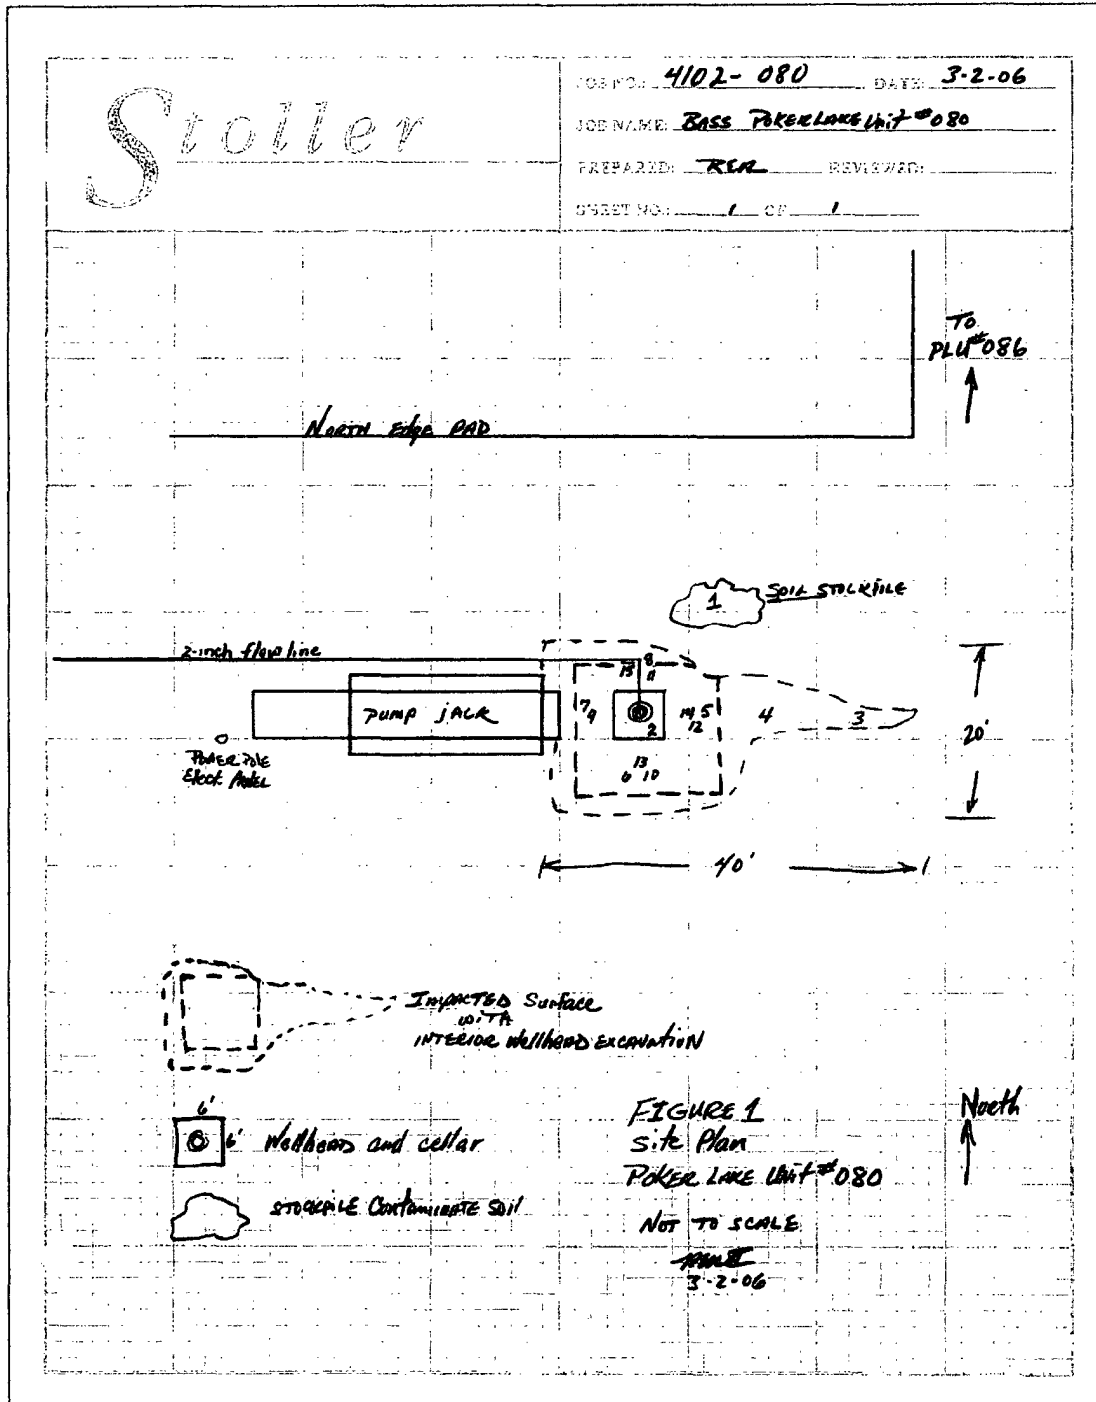 Stoller
JOB NO.: 4102-080 DATE: 3-2-06
JOB NAME: BASS POKER LAKE Unit #080
PREPARED: RER REVIEWED:
SHEET NO.: 1 OF 1
TO
PLU#086
NORTH Edge PAD
1
SOIL STOCKPILE
2-inch flow line
8
15 11
7
9
PUMP JACK
14 5
12
2
4
3
20'
POWER POLE
Elect. PANEL
13
6 10
40'
IMPACTED Surface
WITH
INTERIOR Wellhead EXCAVATION
6'
6'
Wellhead and cellar
STOCKPILE Contaminate SOIL
FIGURE 1
site Plan
POKER LAKE Unit #080
NOT TO SCALE
3-2-06
North